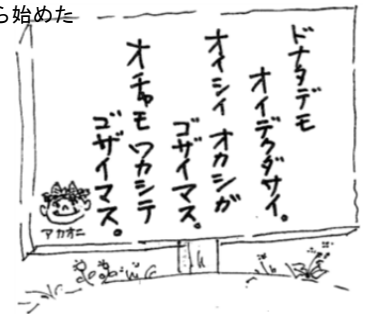 ら始めた
ドナタデモ
オイデクダサイ。
オイシイ オカシガ
ゴザイマス。
オチャモ ワカシテ
ゴザイマス。
アカオニ